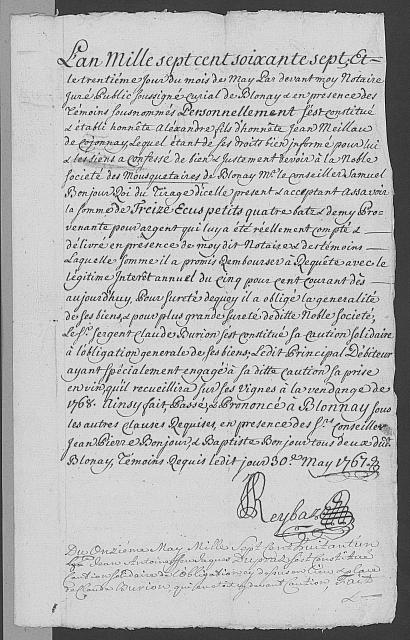 L'an Mille sept cent soixante sept, Et
le trentiéme Jour du mois de May Par devant moy Notaire
Juré Public soussigné Curial de Blonay & en presence des
Témoins sousnommes Personnellement s'est constitué
& établi honnéte Aléxandre fils d'honnéte Jean Meillau
de Cojonnay, Lequel étant de ses droits bien informé pour lui
& les siens a confessé de bien & justement devoir à la Noble
Societé des Mousquetaires de Blonay Mr. le Conseiller Samuel
Bonjour Roi du Tirage d'icelle present & acceptant Assavoir
la somme de Treize Ecus petits quatre batz & demy Pro-
venante pour argent qui luy a été réellement compté &
délivré en presence de moy dit Notaire & des témoins
Laquelle somme il a promis Rembourser à Requéte avec le
légitime Interét annuel du Cinq pour cent courant dès
aujourdhuy, Pour Sureté dequoy il a obligé la generalité
de ses biens, & pour plus grande sureté de ditte Noble Societé,
Le Sr. Sergent Claude Burion s'est constitué sa Caution Solidaire
à l'obligation generale de ses biens, Ledit Principal Debiteur
ayant spécialement engagé à sa ditte Caution sa prise
en vin qu'il recueillira sur ses Vignes à la vendange de
1768. Ainsy fait, Passé, & Prononcé à Blonnay sous
les autres clauses Requises, en presence des Srs. Conseiller
Jean Pierre Bonjour, & Baptiste Bonjour tous deux dud.
Blonay, Témoins Requis ledit jour 30e. May 1767.
Reybaz
Du Onziéme May Mille Sept Cent huitantieu
Jean Antoine s'est Constitué
Caution Solidaire de l'obligation cy dessus en lieu & place
de Claude Burion, qui en étoit cy devant Caution,